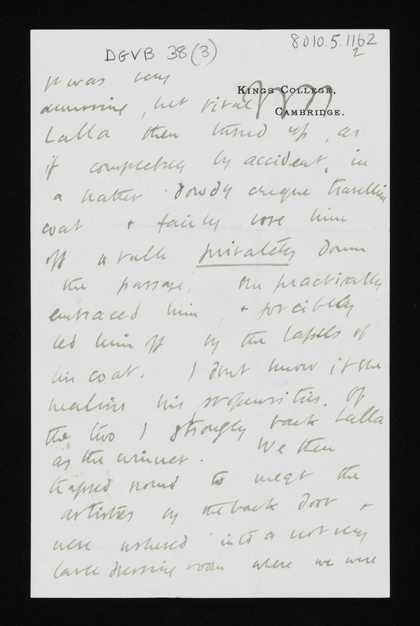 DGVB 38 (3)
8010.5.1162
2
KING'S COLLEGE,
CAMBRIDGE.
It was very
amusing, her rival
Lalla then turned up, as
if completely by accident, in
a rather dowdy crêpe travelling
coat & fairly bore him
off to talk privately down
the passage. She practically
embraced him, & forcibly
led him off by the lapels of
his coat. I don't know if she
realises his propensities. Of
the two I strongly back Lalla
as the winner. We then
trapsed round to meet the
artistes by the back door &
were ushered into a not very
large dressing room where we were